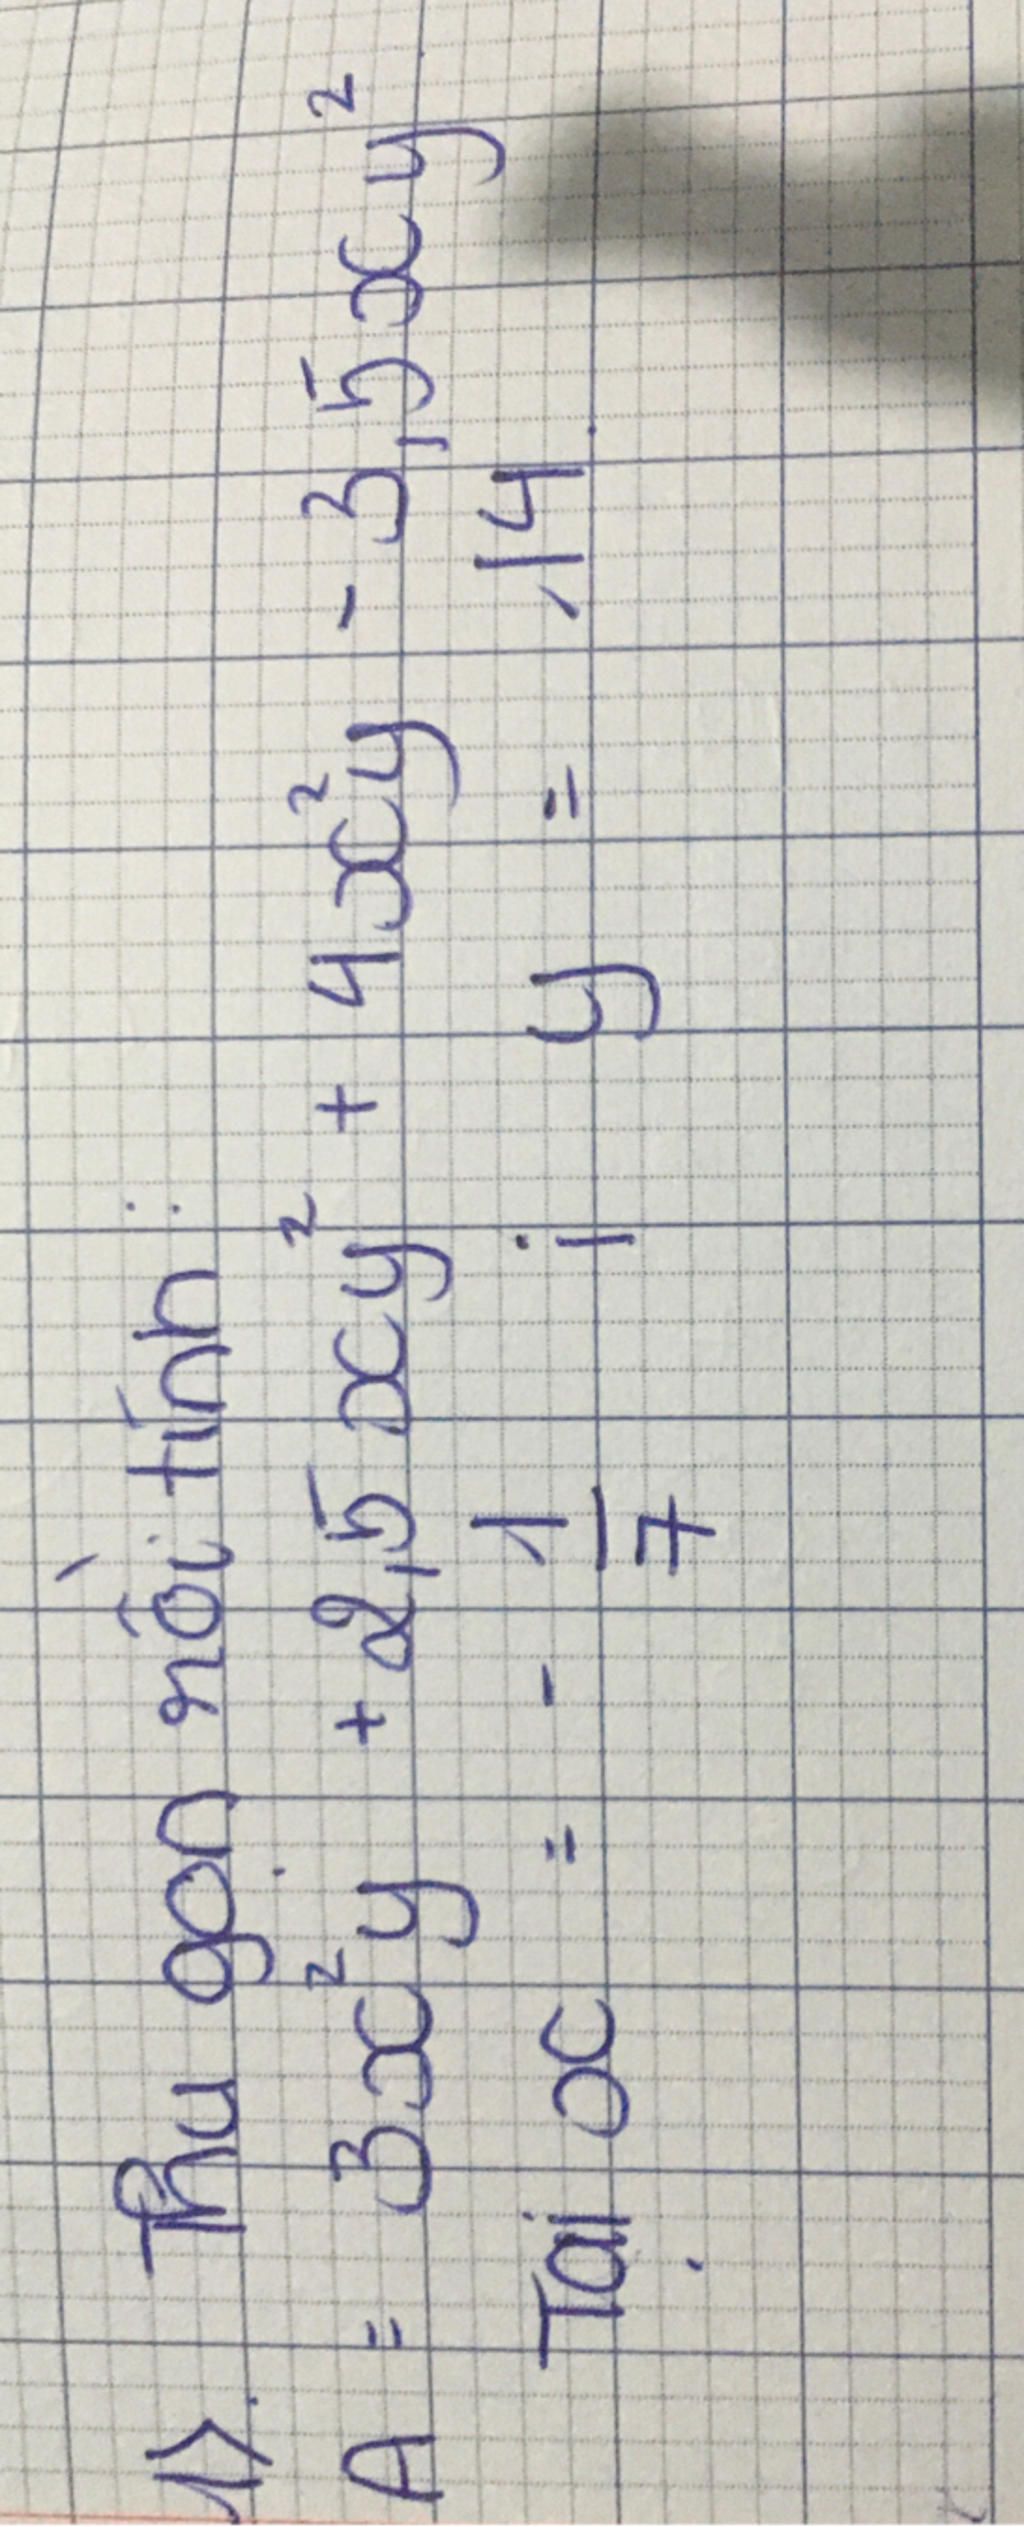 1) Thu gọn rồi tính :
A = 3x²y + 2,5xy² + 4x²y - 3,5xy²
Tại x = - 1/7 ; y = 14.